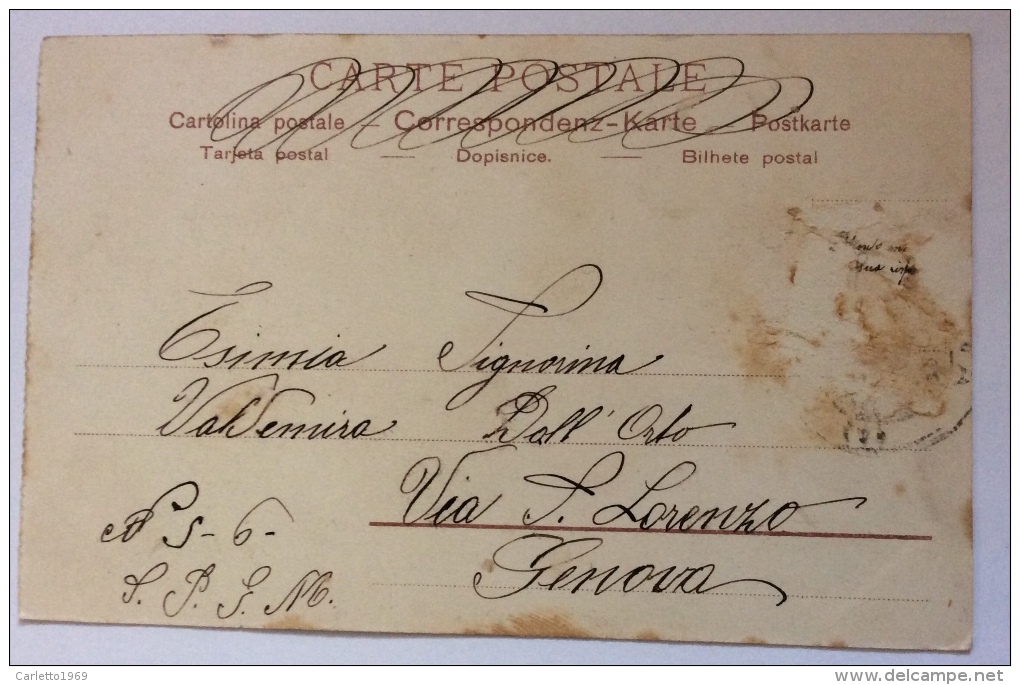 CARTE POSTALE
Cartolina postale — Correspondenz-Karte — Postkarte
Tarjeta postal — Dopisnice. — Bilhete postal
Signorina
Valdemira Dall' Orto
Via S. Lorenzo
5-6-
Genova
S. P. G. M.
Carletto1969
delcampe.net